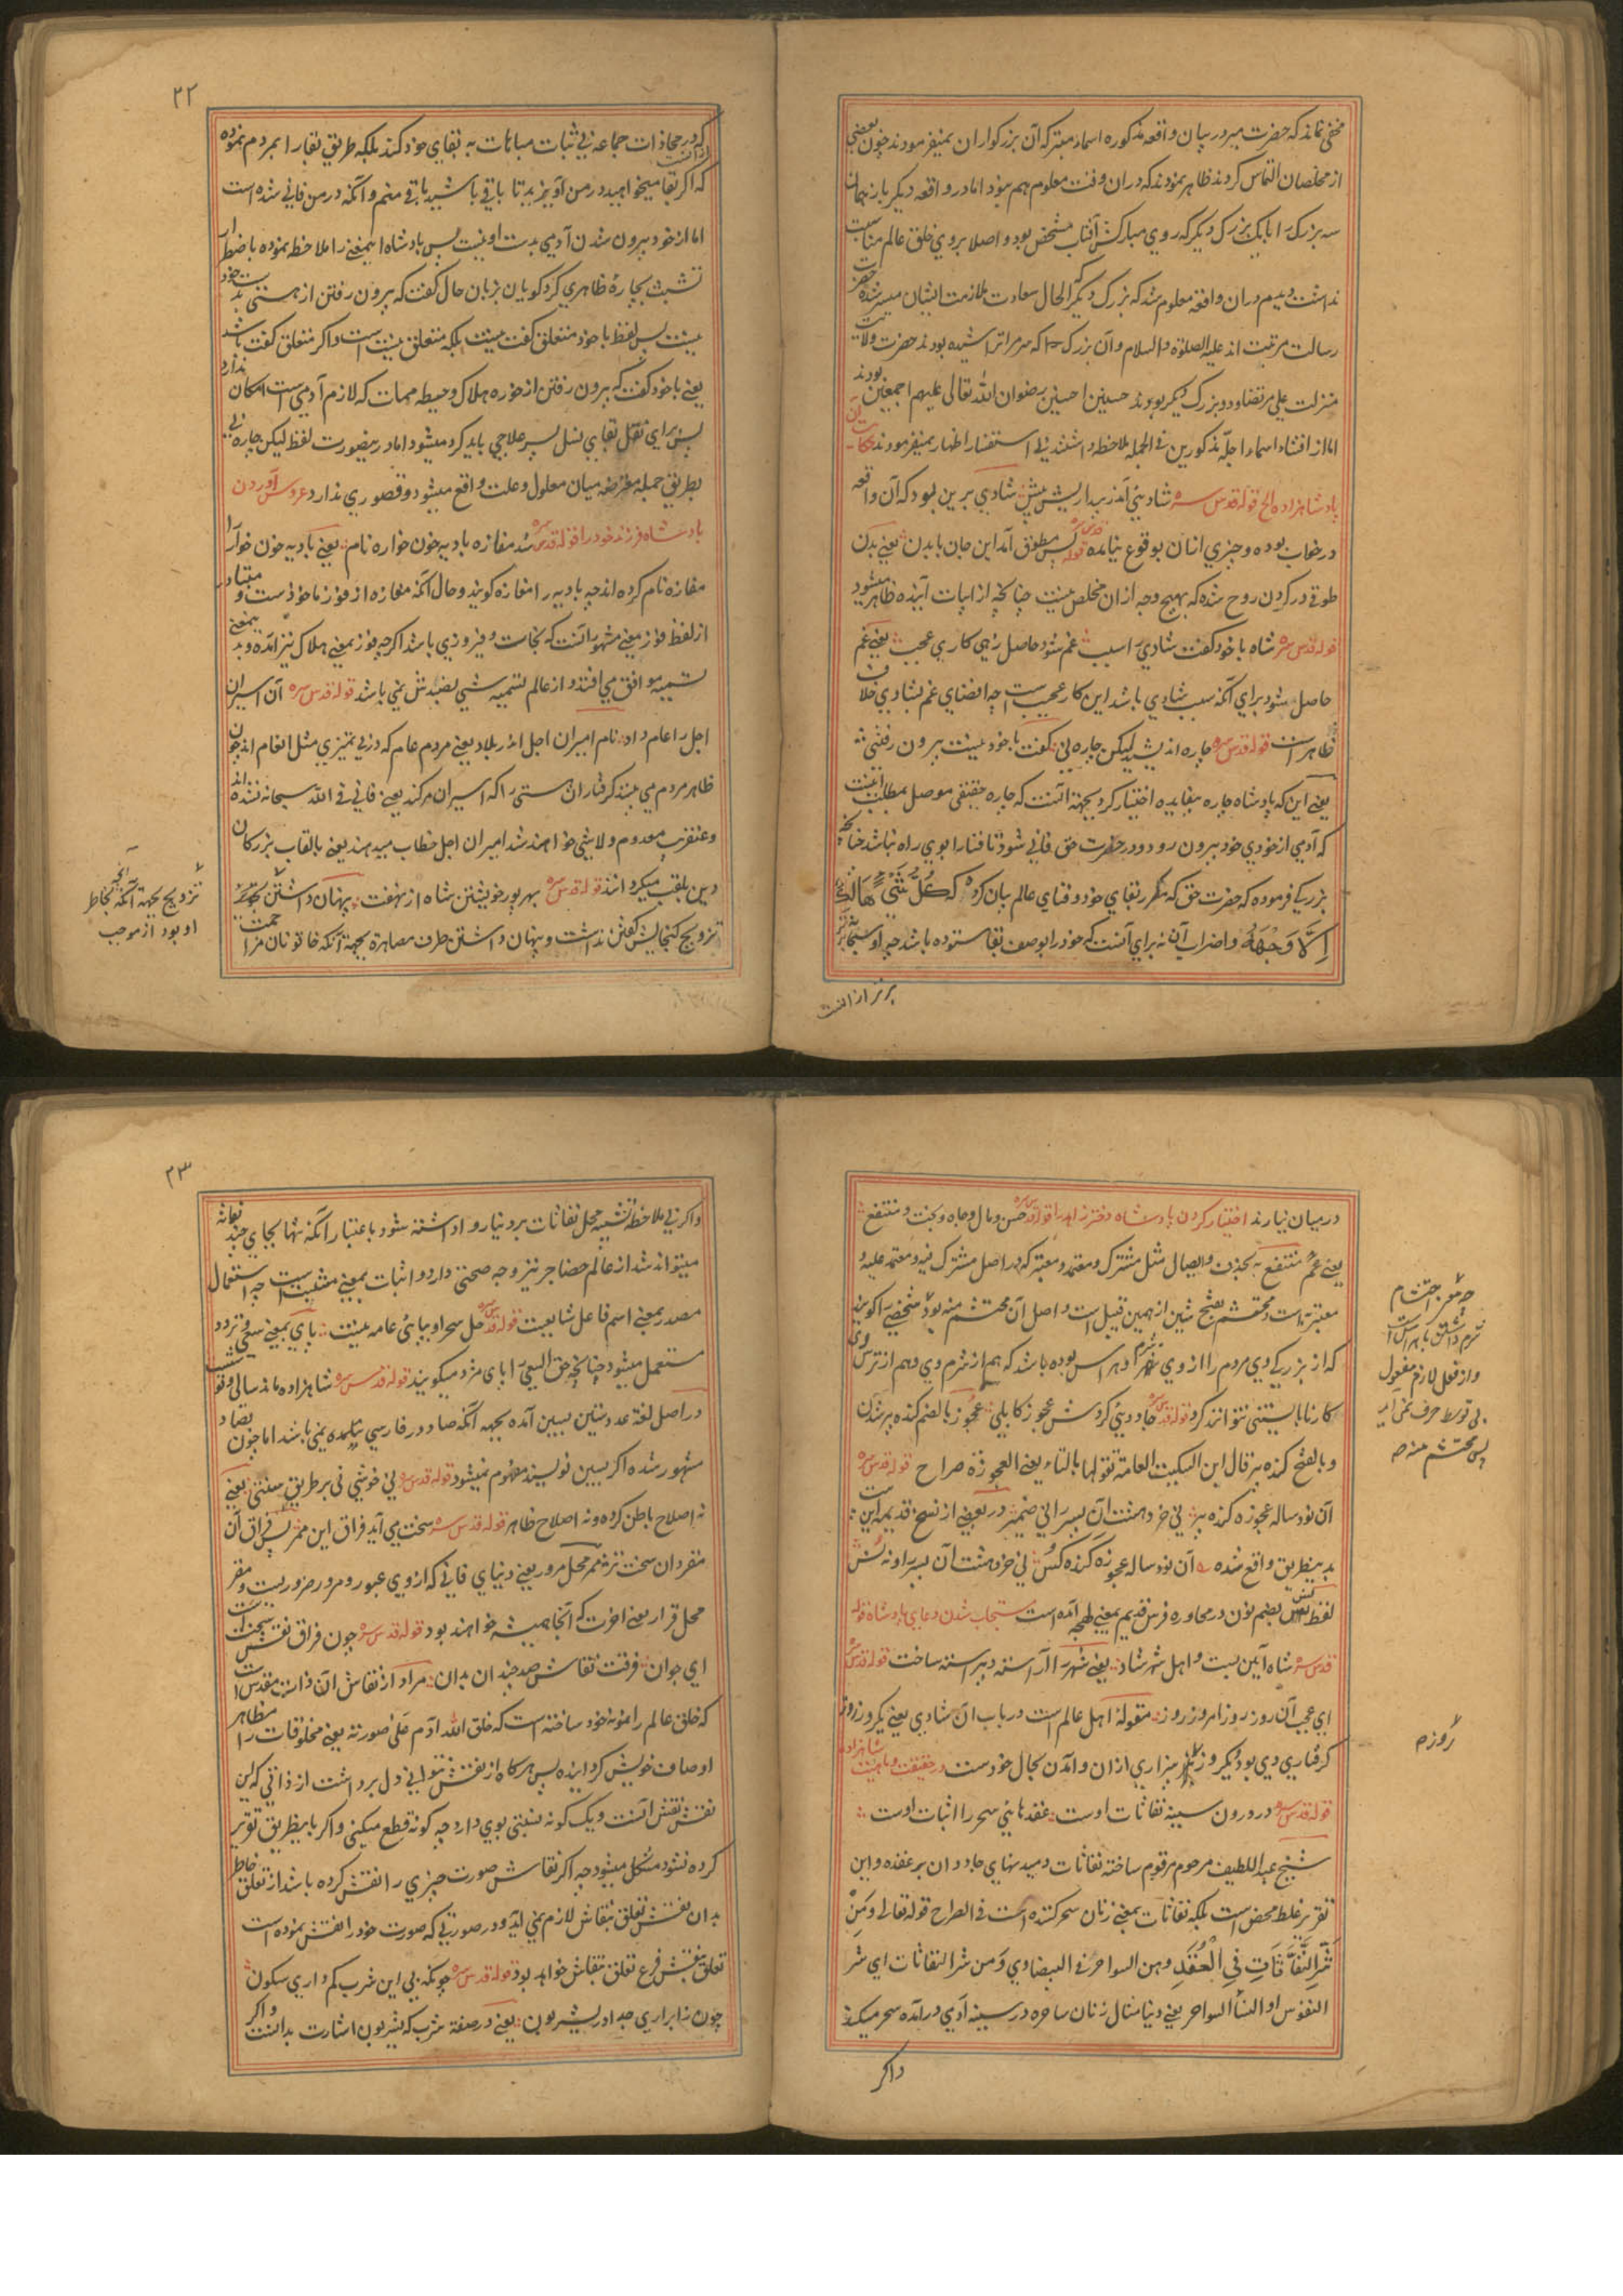 مخفی نماند که حضرت میر در بیان واقعه مذکوره اسماء متبرکه آن بزرگواران نمیفرمودند چون بعضی
از مخلصان التماس کردند ظاهر نمودند که در آن وقت معلوم هم نبود اما در واقعه دیگر باز همان
سه بزرگ را با یک بزرگ دیگر که روی مبارکش آفتاب مشخص بود و اصلا بروی خلق عالم مناسبت
نداشت دیدم در آن واقعه معلوم شد که بزرگ دیگر که الحال سعادت ملازمت ایشان میسر شده حضرت
رسالت مرتبت اند علیه الصلوة والسلام و آن بزرگ که سر مرا تراشیده بودند حضرت ولایت
منزلت علی مرتضا و دو بزرگ دیگر بودند حسنین احسنین رضوان الله تعالی علیهم اجمعین بودند
اما از افشاء اسماء اجله مذکورین فی الجمله ملاحظه داشتند بی استفسار اظهار نمیفرمودند حکایت آن
پادشاهزاده الخ قوله قدس سره شادیی آمد ز بیداریش پیش شادی برین بود که آن واقعه
در خواب بوده و چیزی از آن بوقوع نیامده قوله قدس سره پس مطوق آمد این جان با بدن یعنی بدن
طوقی در گردن روح شده که بهیچ وجه از آن مخلص نیست چنانچه از ابیات آینده ظاهر میشود
قوله قدس سره شاه با خود گفت شادی را سبب غم شود حاصل زهی کاری عجب یعنی غم
حاصل شود برای آنکه سبب شادی باشد این کار عجیب است چه اقتضای غم بشادی خلاف
ظاهر است قوله قدس سره چاره اندیشید لیکن چاره نی گفت با خود نیست بیرون رفتنی
یعنی این که پادشاه چاره بیفایده اختیار کرد بجهة آنست که چاره حقیقی موصل بمطلب اینست
که آدمی از خودی خود بیرون رود و در حضرت حق فانی شود تا فنا را بوی راه نباشد چنانچه
بزرگی فرموده که حضرت حق که مکرر بقای خود و فنای عالم بیان کرده که كُلُّ شَيْءٍ هَالِكٌ
إِلَّا وَجْهَهُ و اضراب آن نه برای آنست که خود را بوصف بقا ستوده باشد چه او سبحانه
برتر از آنست
۲۲
که در محاذات جماعه بی ثبات مباهات به بقای خود کند بلکه طریق بقا را بمردم نموده
که اگر بقا میخواهید در من آویزید تا باقی باشید باقی منم و آنکه در من فانی شده است
اما از خود بیرون شدن آدمی بدست او نیست پس پادشاه اینمعنی را ملاحظه نموده باضطرار
تشبث بچارهٔ ظاهری کرد گویا بزبان حال گفت که بیرون رفتن از هستی خود بدست
نیست پس لفظ با خود متعلق گفت نیست بلکه متعلق نیست است و اگر متعلق گفت باشد
یعنی با خود گفت که بیرون رفتن از خوره هلاک و حیطه ممات که لازم آدمی است امکان ندارد
پس برای نقل بقای نسل پسر علاجی باید کرد میشود اما درینصورت لفظ لیکن چاره نی
بطریق جمله معترضه میان معلول و علت واقع میشود و قصوری ندارد عروس آوردن
پادشاه فرزند خود را قوله قدس سره شد مفازه بادیه خون خواره نام یعنی بادیه خون خوار را
مفازه نام کرده اند چه بادیه را مفازه گویند و حال آنکه مفازه از فوز ماخوذست و متبادر
از لفظ فوز معنی مشهور آنست که نجات و فیروزی باشد اگرچه فوز بمعنی هلاک نیز آمده و بدینمعنی
تسمیه موافق می افتد و از عالم تسمیه شی بضدش نمی باشد قوله قدس سره آن اسیران
اجل را عام داد نام امیران اجل اندر بلاد یعنی مردم عام که در بی تمیزی مثل انعام اند چون
ظاهر مردم می بیند گرفتاران هستی را که اسیران مرگند یعنی فانی فی الله سبحانه نشده اند
و عنقریب معدوم و لاشی خواهند شد امیران اجل خطاب میدهند یعنی بالقاب بزرگان
دین ملقب میگردانند قوله قدس سره بهر پور خویشتن شاه از نهفت پنهان داشتن
تزویج گنجایش گفتن نداشت و پنهان داشتن طرف مصاهره بجهة آنکه خاتونان مزاحمت
تزویج بجهة آنکه بخاطر
او بود از موجب
درمیان نیارند اختیار کردن پادشاه دختر زاهد را قوله قدس سره حسن و مال و جاه و بخت و منتفع
یعنی عم منتفع به بحذف و ایصال مثل مشترک و معتمد و معتبر که در اصل مشترک فیه و معتمد علیه و
معتبر به است و محتشم بفتح شین از همین قبیل است و اصل آن محتشم منه بود شخصی را گویند
که از بزرگی وی مردم را از وی شرم و هراس بوده باشد که هم از شرم وی و هم از ترس وی
کار نابایستنی نتوانند کرد قوله قدس سره جادویی کردش عجوز کابلی عجوز بالضم گنده پیر شدن
و بالفتح گنده پیر قال ابن السکیت العامة تقولها بالتاء یعنی العجوزة صراح قوله قدس سره
آن نود ساله عجوزه گنده پیر نی خرد هشت آن پسر را نی ضمیر در بعضی از نسخ قدیمه این بیت
بدینطریق واقع شده آن نود ساله عجوزه گنده کس نی خرد هشت آن پسر را و نه نس
لفظ نس بضم نون در محاوره فرس قدیم بمعنی لهجه آمده است مستجاب شدن دعای پادشاه قوله
قدس سره شاه آیین بست و اهل شهر شاد یعنی شهر را آراسته و پیراسته ساخت قوله قدس سره
ای عجب آن روز روز امروز روز مقوله اهل عالم است در باب آن شادی یعنی یکروز روز
گرفتاری وی بود دیگر روز بیزاری از آن و آمدن بحال خودست در حقیقت و ماهیت شاهزاده
قوله قدس سره در درون سینه نفاثات اوست عقدهایی سحر را اثبات اوست
شیخ عبد اللطیف مرحوم مرقوم ساخته نفاثات دمیدنهای جادوان بر عقده و این
تقریر غلط محض است بلکه نفاثات بمعنی زنان سحر کننده است فی الصراح قوله تعالی وَمِنْ
شَرِّ النَّفَّاثَاتِ فِي الْعُقَدِ وهن السواحر فی البیضاوی و من شر النفاثات ای شر
النفوس او النساء السواحر یعنی دنیا مثال زنان ساحره در سینه آدمی درآمده سحر میکند
واگر
چه معنی احتشام
شرم داشتن با هراس است
و از فعل لازم مفعول
بی توسط حرف نمی آید
پس محتشم منه
روزه
۲۳
واگر بی ملاحظه تشبیه محل نفاثات بر دنیا روا داشته شود باعتبار آنکه تنها بجای چند نفاثه
میتواند شد از عالم حضاجر نیز وجه صحتی دارد و اثبات بمعنی مثبت است چه استعمال
مصدر بمعنی اسم فاعل شایعست قوله قدس سره حل سحر او بپای عامه نیست پای بمعنی سعی و تردد
مستعمل میشود چنانچه حق السعی را پای مزد میگویند قوله قدس سره شاهزاده ماند سالی و شست
در اصل لغة عدد ستین بسین آمده بجهه آنکه صاد در فارسی نیامده نمی باشد اما چون بصاد
مشهور شده اگر بسین نویسند مفهوم نمیشود قوله قدس سره نی خوشی نی بر طریق سنتی یعنی
نه اصلاح باطن کرده و نه اصلاح ظاهر قوله قدس سره سخت می آید فراق این ممر پس فراق آن
مقر دان سخت تر ممر محل مرور یعنی دنیای فانی که از وی عبور و مرور ضروریست و مقر
محل قرار یعنی آخرت که آنجا همیشه خواهند بود قوله قدس سره چون فراق نقش سختست
ای جوان فرقت نقاش صد چندان بدان مراد از نقاش آن ذات مقدس است
که خلق عالم را نمونه خود ساخته است که خلق الله آدم علی صورته یعنی مخلوقات را مظاهر
اوصاف خویش گردانیده پس هرگاه از نقش نتوانی دل برداشت از ذاتی که این
نقش نقش آنست و یک گونه نسبتی بوی دارد چه گونه قطع میکنی و اگر باینطریق تقریر
کرده نشود مشکل میشود چه اگر نقاش صورت چیزی را نقش کرده باشد از تعلق خاطر
بدان نقش تعلق بنقاش لازم نمی آید و در صورتی که صورت خود را نقش نموده است
تعلق بنقش فرع تعلق بنقاش خواهد بود قوله قدس سره چونکه بی این شرب کم داری سکون
چون ز ابراری جدا و ز یشربون یعنی در صفة شرب که یشربون اشارت بدانست و اگر